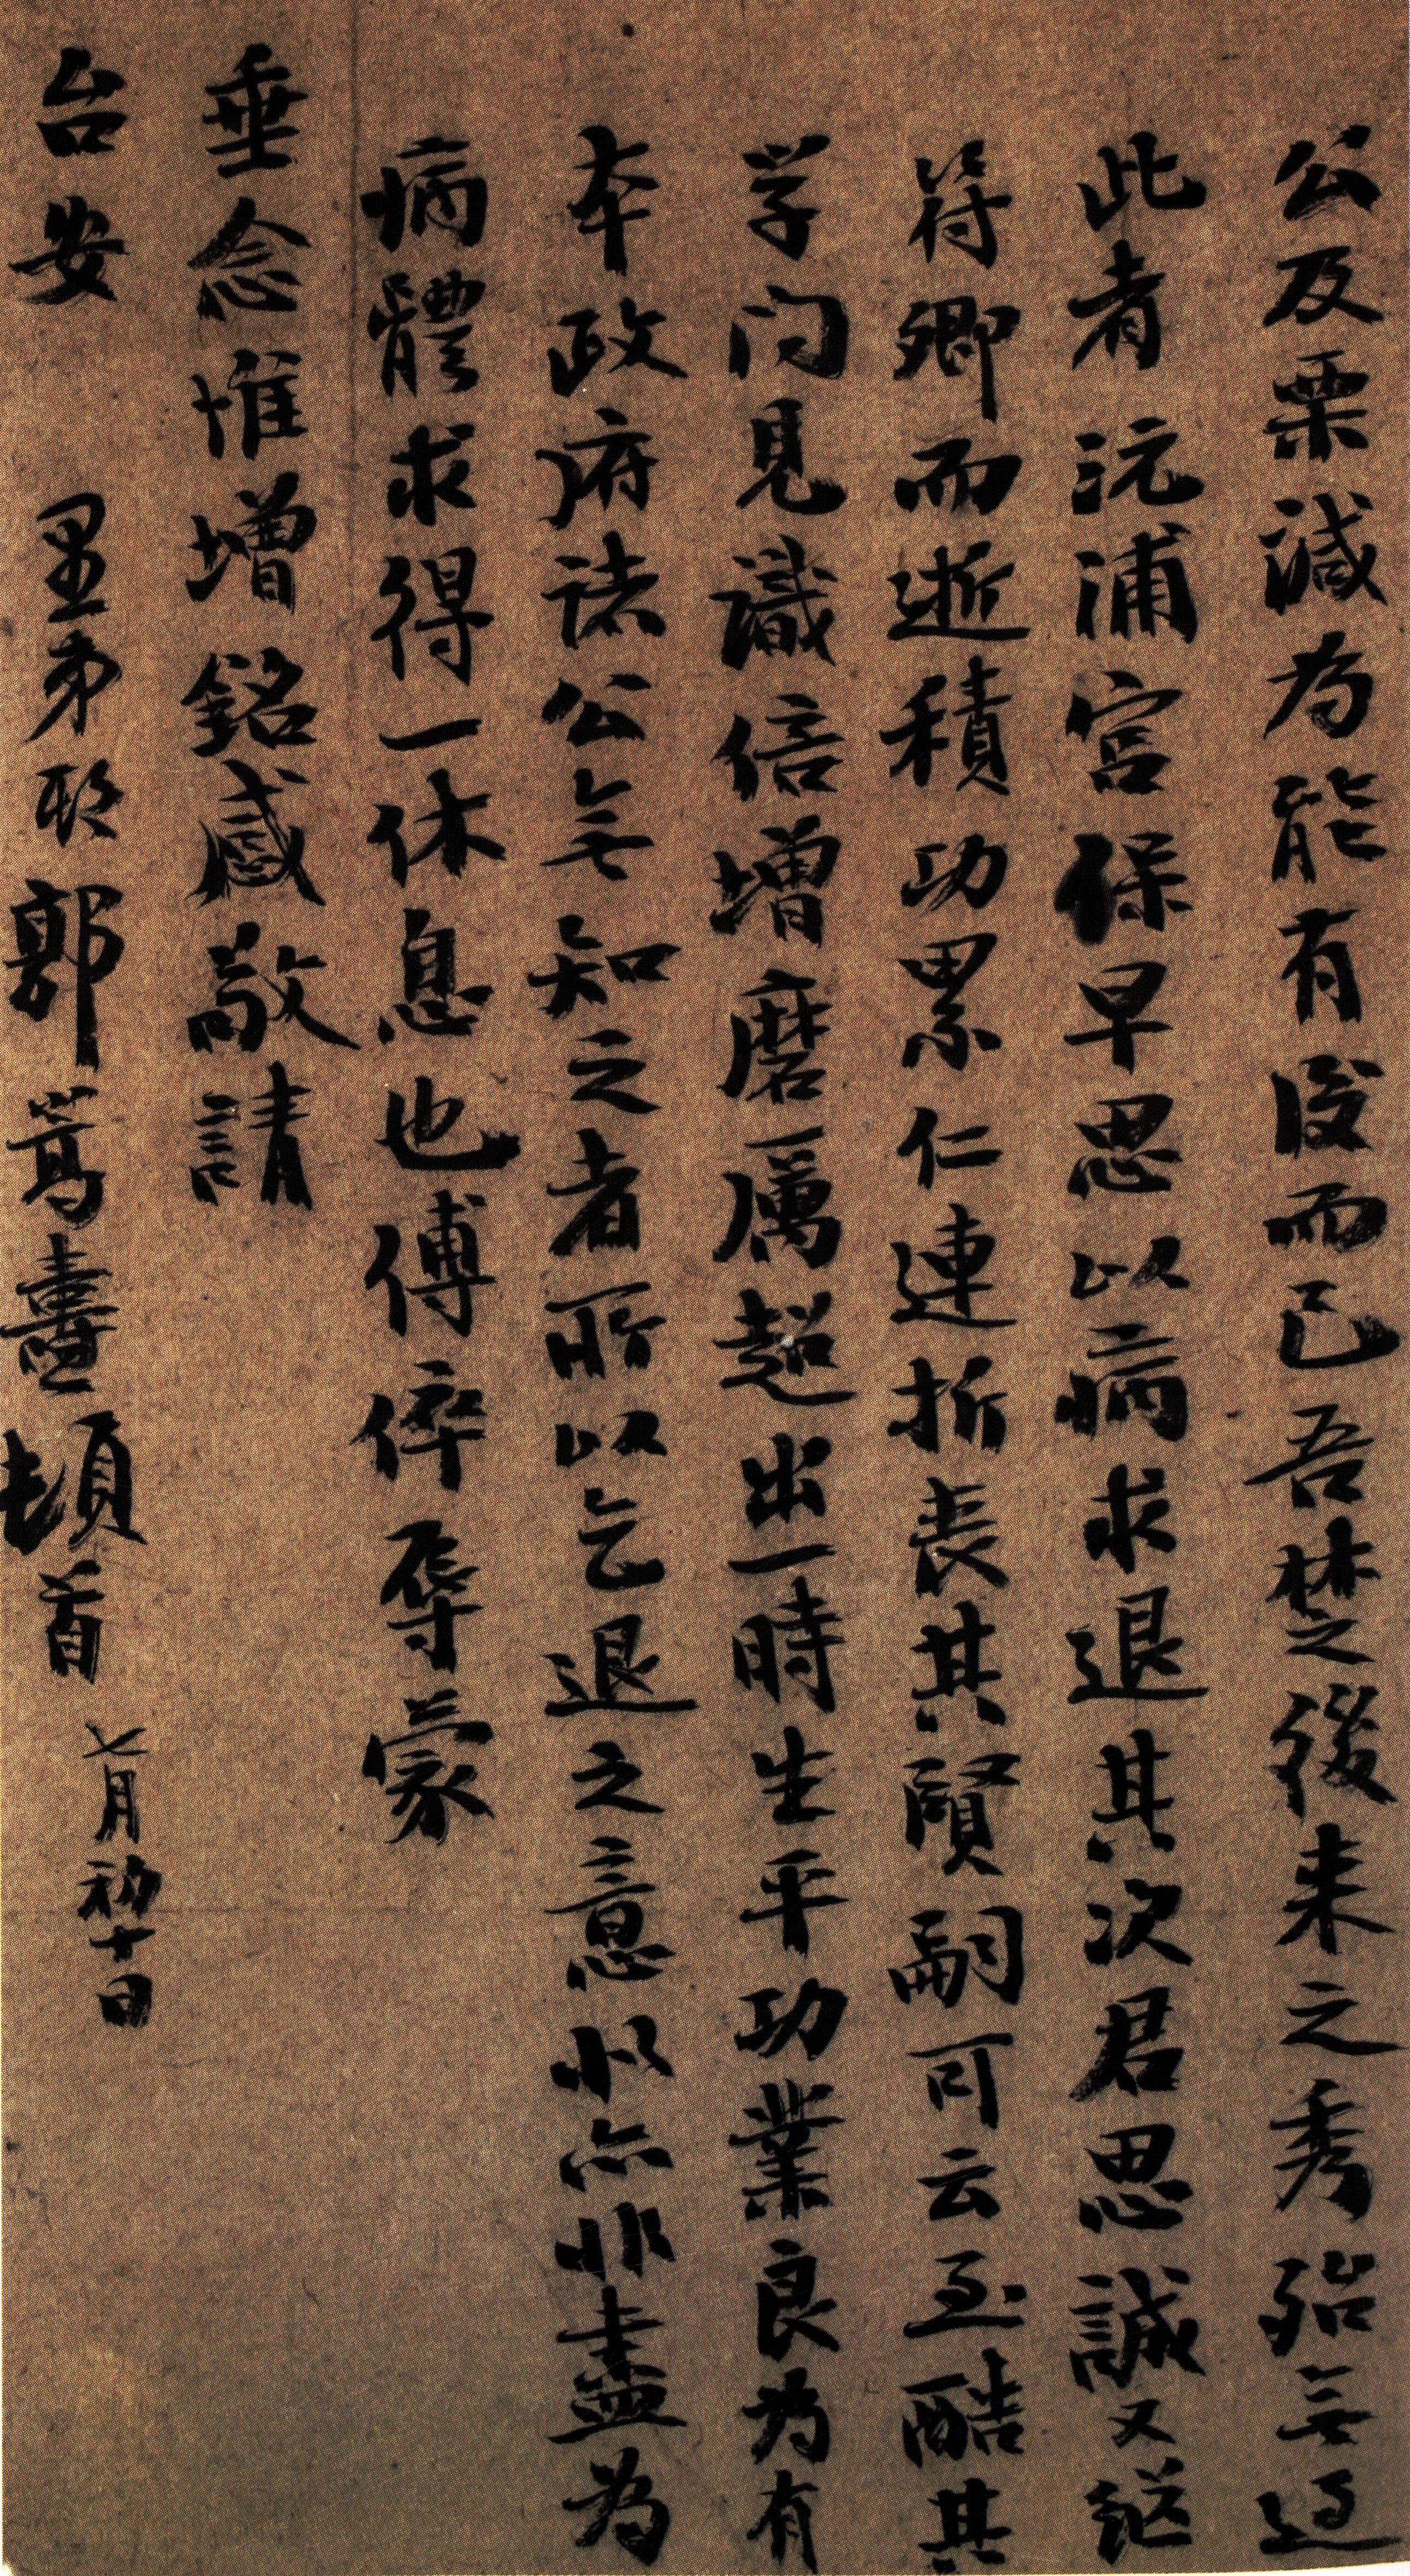 公及栗諴为能有後而已吾楚後来之秀殆無过
此者沅浦宫保早思以病求退其次君思誠又継
符卿而逝積功累仁連折丧其賢嗣可云至酷其
学问見識倍增磨厲超出一時生平功業良为有
本政府诸公无知之者所以乞退之意似亦非盡为
病體求得一休息也傅倅辱蒙
垂念惟增銘感敬請
台安 里弟期郭嵩燾頓首 七月初十日